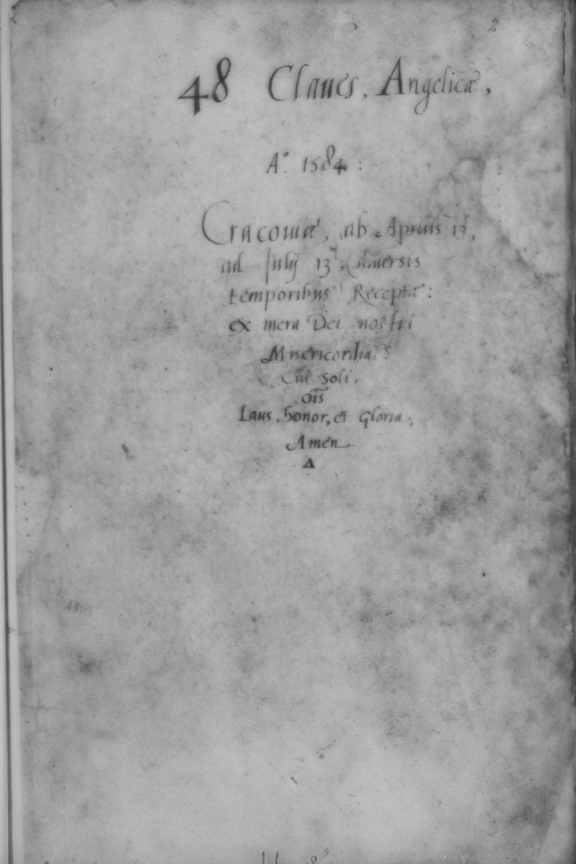 2
48 Claues. Angelicæ.
Aº. 1584 :
Cracouiæ, ab Aprilis 13,
ad Julij 13, diuersis
temporibus Receptæ :
ex mera Dei nostri
Misericordia :
Cui soli,
oīs
Laus, honor, et Gloria,
Amen.
Δ